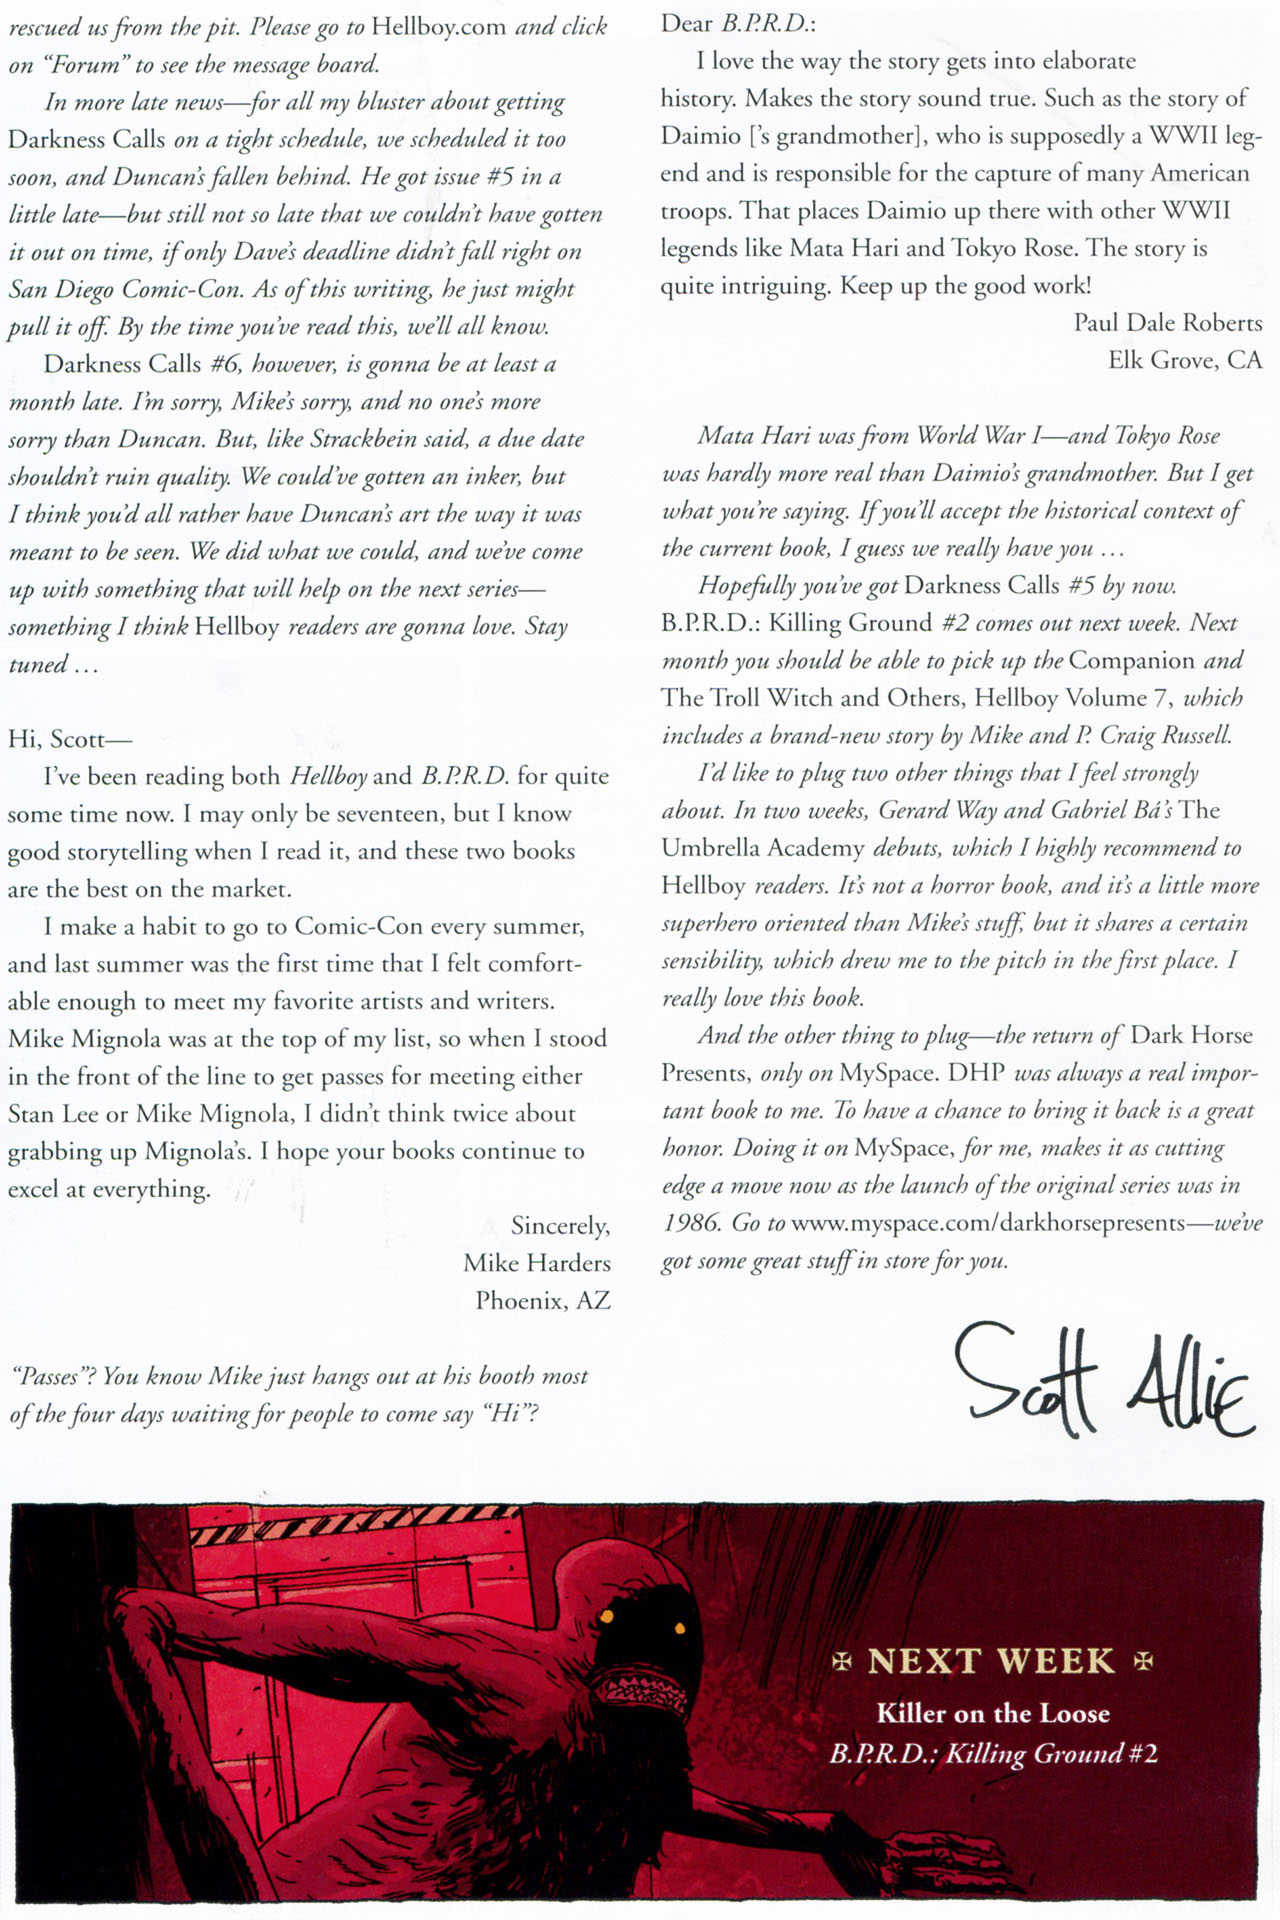 rescued us from the pit. Please go to Hellboy.com and click
on “Forum” to see the message board.
In more late news—for all my bluster about getting
Darkness Calls on a tight schedule, we scheduled it too
soon, and Duncan’s fallen behind. He got issue #5 in a
little late—but still not so late that we couldn’t have gotten
it out on time, if only Dave’s deadline didn’t fall right on
San Diego Comic-Con. As of this writing, he just might
pull it off. By the time you’ve read this, we’ll all know.
Darkness Calls #6, however, is gonna be at least a
month late. I’m sorry, Mike’s sorry, and no one’s more
sorry than Duncan. But, like Strackbein said, a due date
shouldn’t ruin quality. We could’ve gotten an inker, but
I think you’d all rather have Duncan’s art the way it was
meant to be seen. We did what we could, and we’ve come
up with something that will help on the next series—
something I think Hellboy readers are gonna love. Stay
tuned . . .
Hi, Scott—
I’ve been reading both Hellboy and B.P.R.D. for quite
some time now. I may only be seventeen, but I know
good storytelling when I read it, and these two books
are the best on the market.
I make a habit to go to Comic-Con every summer,
and last summer was the first time that I felt comfort-
able enough to meet my favorite artists and writers.
Mike Mignola was at the top of my list, so when I stood
in the front of the line to get passes for meeting either
Stan Lee or Mike Mignola, I didn’t think twice about
grabbing up Mignola’s. I hope your books continue to
excel at everything.
Sincerely,
Mike Harders
Phoenix, AZ
“Passes”? You know Mike just hangs out at his booth most
of the four days waiting for people to come say “Hi”?
Dear B.P.R.D.:
I love the way the story gets into elaborate
history. Makes the story sound true. Such as the story of
Daimio [’s grandmother], who is supposedly a WWII leg-
end and is responsible for the capture of many American
troops. That places Daimio up there with other WWII
legends like Mata Hari and Tokyo Rose. The story is
quite intriguing. Keep up the good work!
Paul Dale Roberts
Elk Grove, CA
Mata Hari was from World War I—and Tokyo Rose
was hardly more real than Daimio’s grandmother. But I get
what you’re saying. If you’ll accept the historical context of
the current book, I guess we really have you . . .
Hopefully you’ve got Darkness Calls #5 by now.
B.P.R.D.: Killing Ground #2 comes out next week. Next
month you should be able to pick up the Companion and
The Troll Witch and Others, Hellboy Volume 7, which
includes a brand-new story by Mike and P. Craig Russell.
I’d like to plug two other things that I feel strongly
about. In two weeks, Gerard Way and Gabriel Bá’s The
Umbrella Academy debuts, which I highly recommend to
Hellboy readers. It’s not a horror book, and it’s a little more
superhero oriented than Mike’s stuff, but it shares a certain
sensibility, which drew me to the pitch in the first place. I
really love this book.
And the other thing to plug—the return of Dark Horse
Presents, only on MySpace. DHP was always a real impor-
tant book to me. To have a chance to bring it back is a great
honor. Doing it on MySpace, for me, makes it as cutting
edge a move now as the launch of the original series was in
1986. Go to www.myspace.com/darkhorsepresents—we’ve
got some great stuff in store for you.
Scott Allie
NEXT WEEK
Killer on the Loose
B.P.R.D.: Killing Ground #2